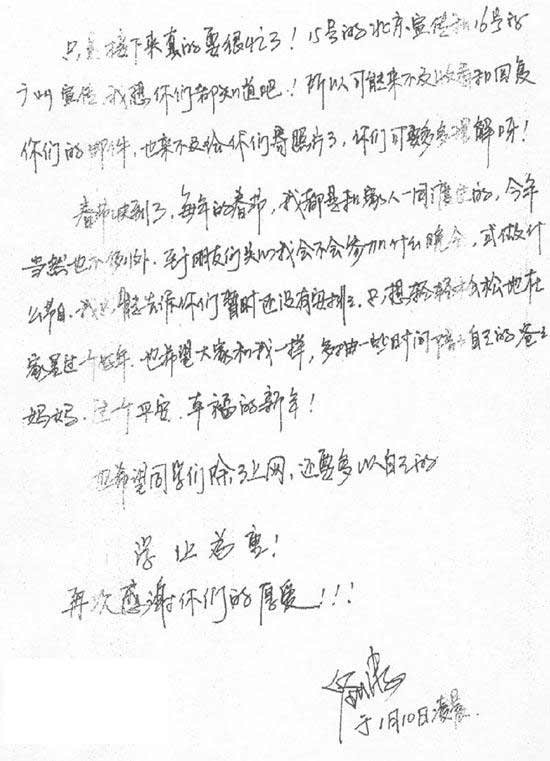 只是接下来真的要很忙了！15号的北京宣传和16号的
广州宣传，我想你们都知道吧！所以可能来不及收看和回复
你们的邮件，也来不及给你们寄照片了，你们可要多多理解呀！
春节快到了，每年的春节，我都是和家人一同度过的，今年
当然也不例外。至于朋友们关心我会不会参加什么晚会，或做什
么节目，我只能告诉你们暂时还没有安排，只想轻轻松松地在
家里过个好年，也希望大家和我一样，多抽一些时间陪陪自己的爸爸
妈妈，过个平安、幸福的新年！
也希望同学们除了上网，还要多以自己的
学业为重！
再次感谢你们的厚爱！！！
于1月10日凌晨